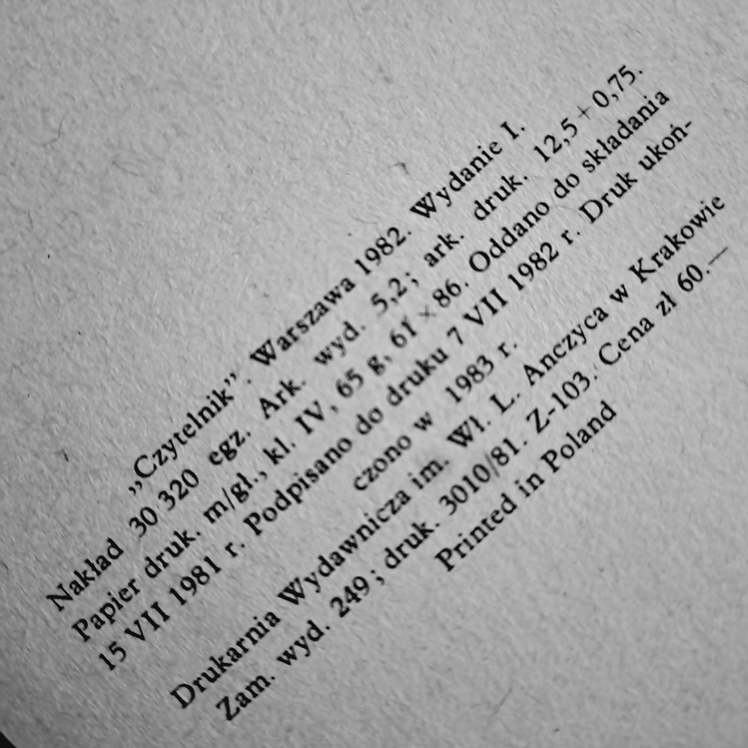 „Czytelnik”. Warszawa 1982. Wydanie I.
Nakład 30 320 egz. Ark. wyd. 5,2; ark. druk. 12,5 + 0,75.
Papier druk. m/gł., kl. IV, 65 g, 61 × 86. Oddano do składania
15 VII 1981 r. Podpisano do druku 7 VII 1982 r. Druk ukoń-
czono w 1983 r.
Drukarnia Wydawnicza im. Wł. L. Anczyca w Krakowie
Zam. wyd. 249; druk. 3010/81. Z-103. Cena zł 60.—
Printed in Poland